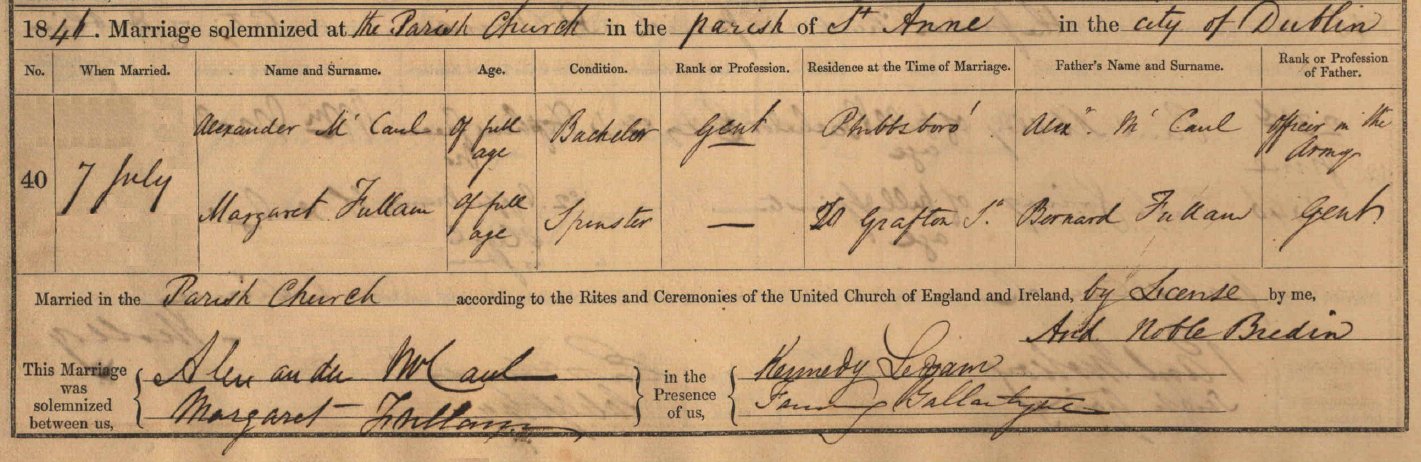 1846. Marriage solemnized at the Parish Church in the parish of St Anne in the city of Dublin
No. When Married. Name and Surname. Age. Condition. Rank or Profession. Residence at the Time of Marriage. Father's Name and Surname. Rank or Profession of Father.
Alexander Mc Caul Of full age Bachelor Gent Phibbsboro' Alexr. Mc Caul Officer in the Army
40 7 July
Margaret Fullam Of full age Spinster — Grafton St. Bernard Fullam Gent
Married in the Parish Church according to the Rites and Ceremonies of the United Church of England and Ireland, by License by me,
And. Noble Bredin
This Marriage was solemnized between us, Alexander McCaul in the Presence of us, Kennedy
Margaret Fullam Ballantyne